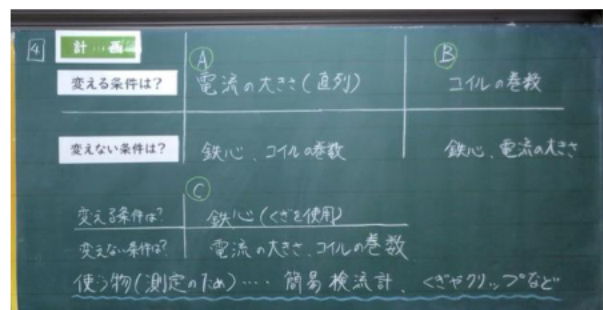 4 計画
A B
変える条件は? 電流の大きさ(直列) コイルの巻数
変えない条件は? 鉄心、コイルの巻数 鉄心、電流の大きさ
C
変える条件は? 鉄心(くぎを使用)
変えない条件は? 電流の大きさ、コイルの巻数
使う物(測定のため)‥‥ 簡易検流計、くぎやクリップなど